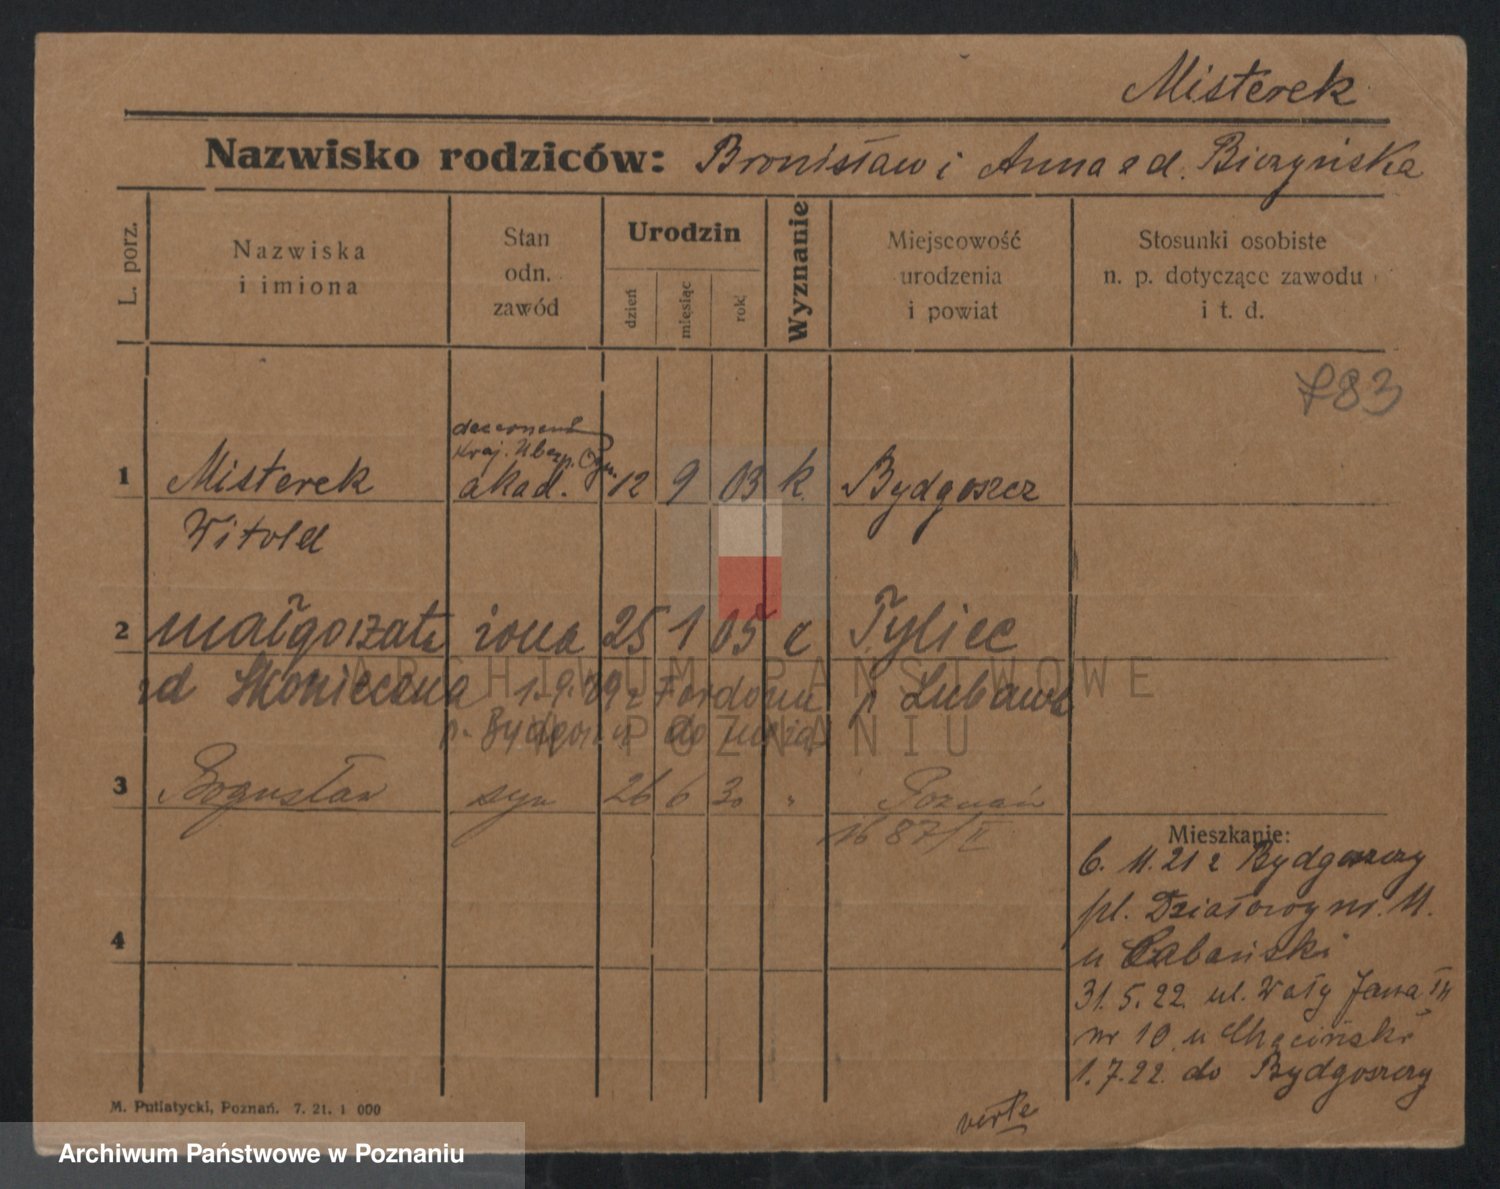 Misterek
Nazwisko rodziców: Bronisław i Anna z d. Bierzyńska
L. porz.
Nazwiska
i imiona
Stan
odn.
zawód
Urodzin
dzień
miesiąc
rok
Wyznanie
Miejscowość
urodzenia
i powiat
Stosunki osobiste
n. p. dotyczące zawodu
i t. d.
783
decernent
Kraj. Ubezp. Ogn.
1 Misterek akad. 12 9 03 k. Bydgoszcz
Witold
2 Małgorzata żona 25 1 05 k Tylice
zd Skonieczna 1.9.29 z Fordonu p Lubawa
p. Bydgoszcz do męża
3 Bogusław syn 26 6 30 " Poznań
1687/II
Mieszkanie:
6. 11. 21 z Bydgoszczy
pl. Działowy nr. 11.
u Cabański
4
31. 5. 22 ul. Wały Jana III
nr 10 u Chęciński
1. 7. 22. do Bydgoszczy
verte
M. Putiatycki, Poznań. 7. 21. 1 000
ARCHIWUM PAŃSTWOWE
W POZNANIU
Archiwum Państwowe w Poznaniu